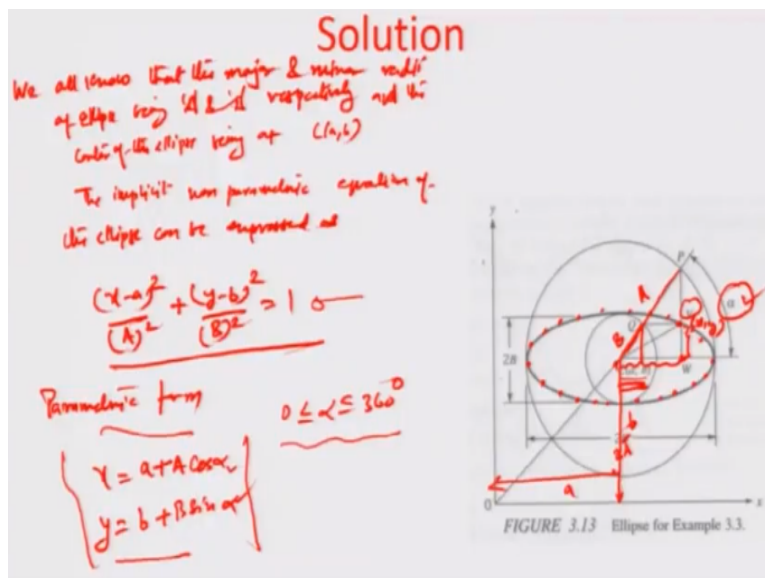 Solution
We all know that the major & minor radii
of ellipse being 'A' & 'B' respectively and the
center of the ellipse being at (a,b)
The implicit non parametric equation of
the ellipse can be expressed as
(x-a)²/(A)² + (y-b)²/(B)² = 1
Parametric form
0 ≤ α ≤ 360°
x = a + A Cosα
y = b + B Sin α
y
P
A
α
B
(x,y)
2B
W
b
2A
a
0
x
FIGURE 3.13 Ellipse for Example 3.3.